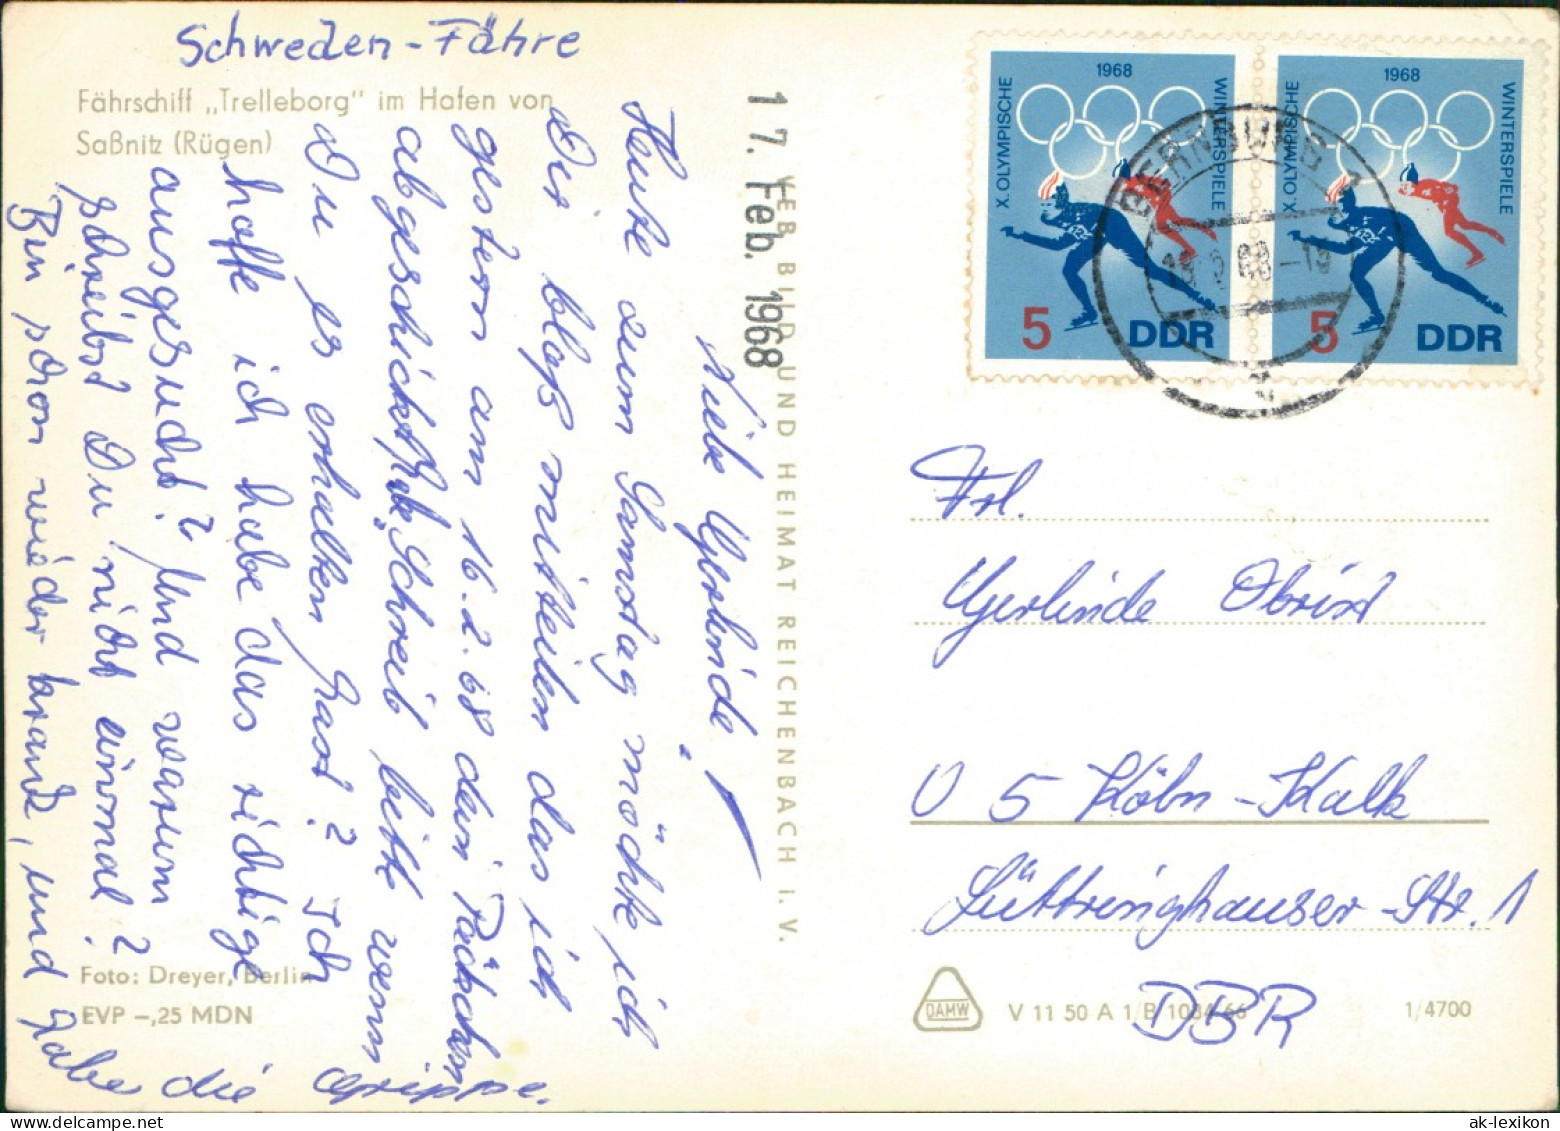 Schweden-Fähre
Fährschiff „Trelleborg" im Hafen von
Saßnitz (Rügen)
17. Feb. 1968
Liebe Gerlinde!
Heute zum Samstag möchte ich
Dir bloß mitteilen das ich
gestern am 16.2.68 dein Päckchen
abgeschickt habe. Schreib bitte wenn
Du es erhalten hast? Ich
hoffe ich habe das richtige
ausgesucht? Und warum
schreibst Du nicht einmal?
Bin schon wieder krank, und
habe die Grippe.
Foto: Dreyer, Berlin
EVP -,25 MDN
VEB BILD UND HEIMAT REICHENBACH i. V.
1968
X. OLYMPISCHE
WINTERSPIELE
5 DDR
1968
X. OLYMPISCHE
WINTERSPIELE
5 DDR
BERNBURG 1
Frl.
Gerlinde Obrist
5 Köln-Kalk
Lüttringhauser-Str. 1
DBR
DAMW
V 11 50 A 1/B 1084/66
1/4700
ak-lexikon